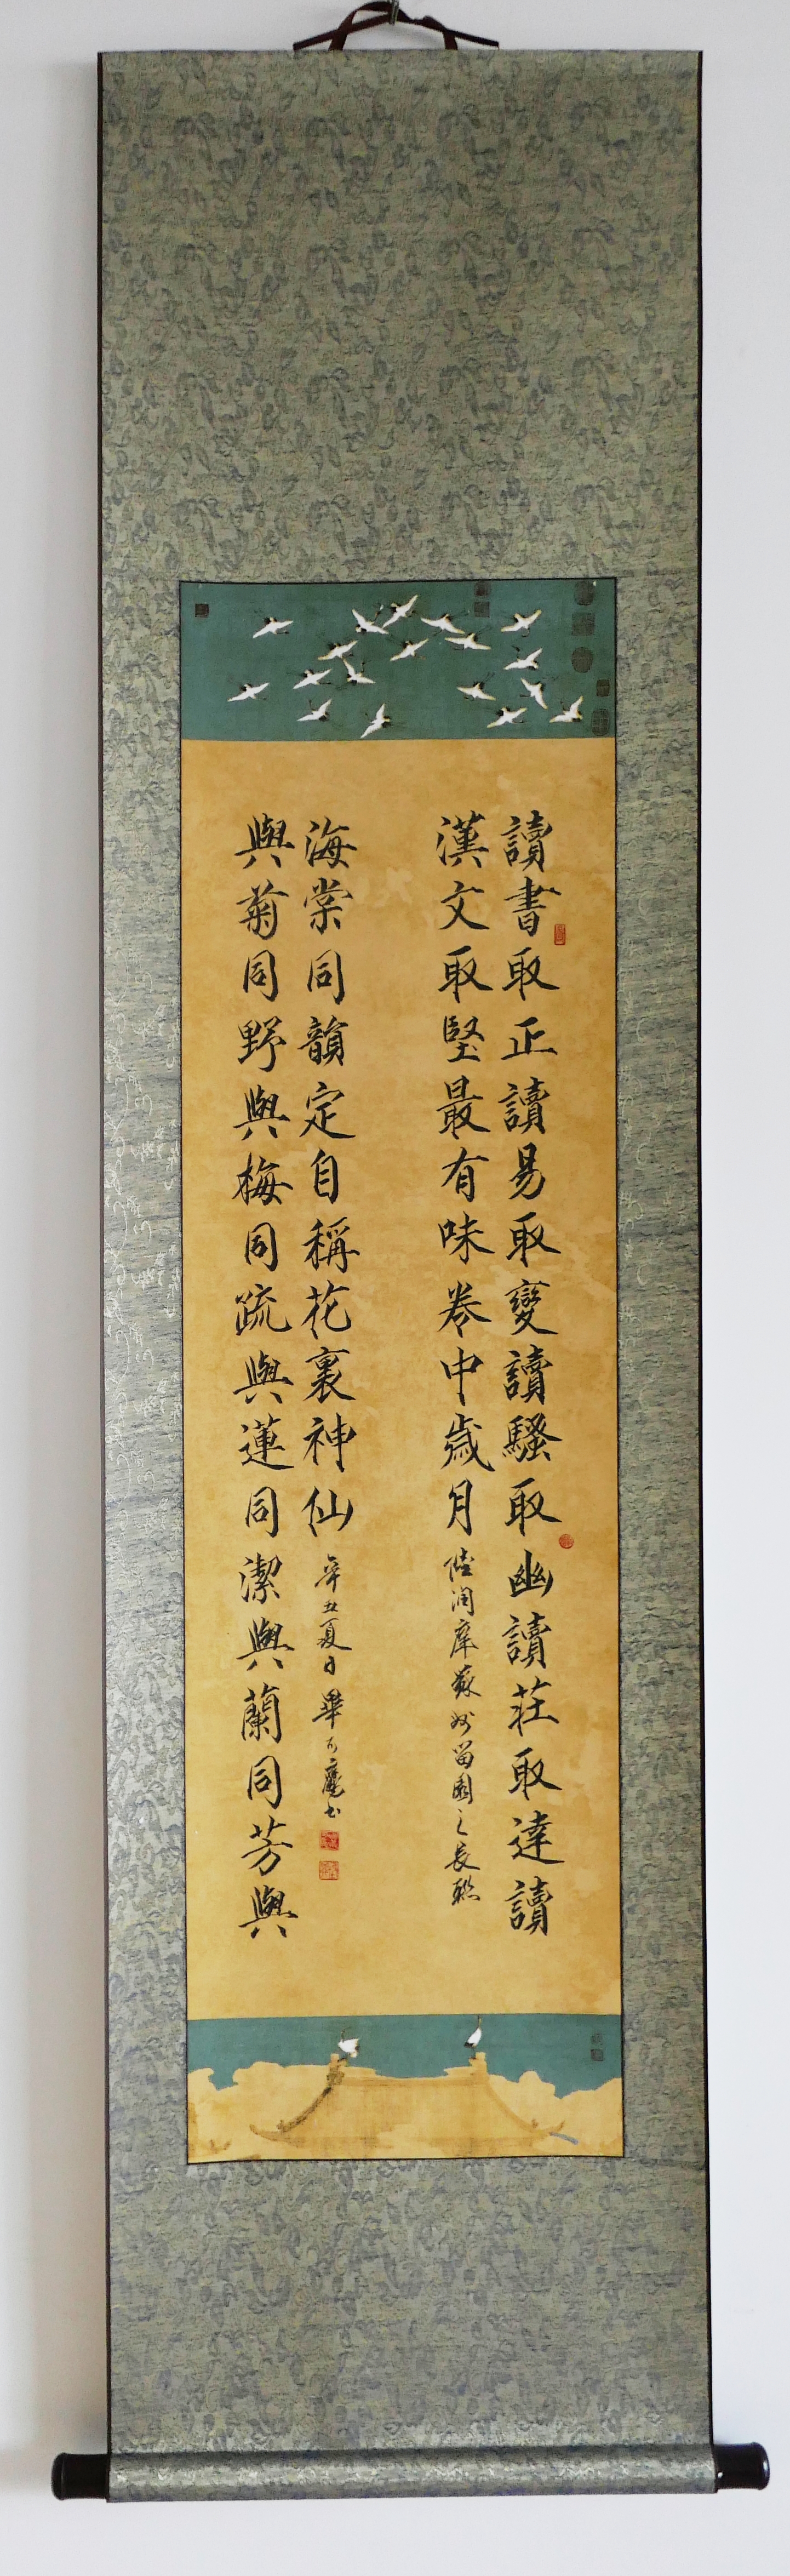 讀書取正讀易取變讀騷取幽讀莊取達讀
漢文取堅最有味卷中歲月
陸潤庠蘇州留園之長聯
與菊同野與梅同疏與蓮同潔與蘭同芳與
海棠同韻定自稱花裏神仙
辛丑夏日